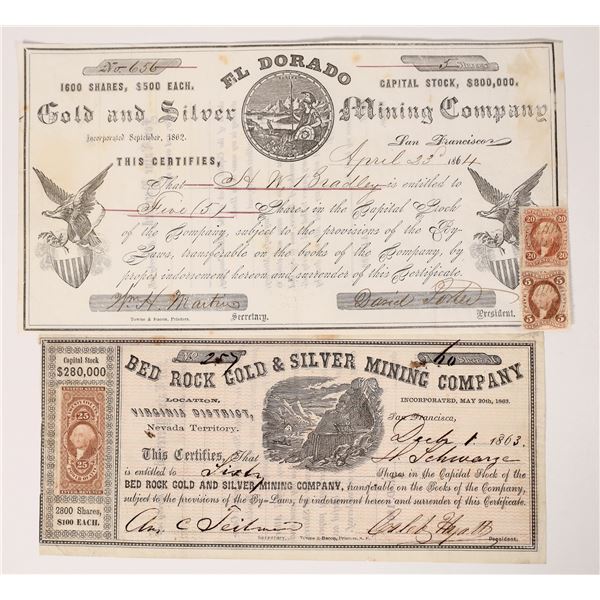 No. 656
5 Shares
EL DORADO
1600 SHARES, $500 EACH.
CAPITAL STOCK, $800,000.
Gold and Silver Mining Company
Incorporated September, 1862.
San Francisco
April 23d 1864
THIS CERTIFIES,
That A. W. Bradley is entitled to
Five (5) Shares in the Capital Stock
of the Company, subject to the provisions of the By-
Laws, transferable on the books of the Company, by
proper indorsement hereon and surrender of this Certificate.
Wm H. Martin
Secretary.
Towne & Bacon, Printers.
President.
20 20
5 5
No. 257
60
Capital Stock
$280,000
BED ROCK GOLD & SILVER MINING COMPANY
LOCATION,
VIRGINIA DISTRICT,
Nevada Territory.
INCORPORATED, MAY 20th, 1863.
San Francisco,
1. 1863
25 25
This Certifies, That
Schwarze
is entitled to Sixty Shares in the Capital Stock of the
BED ROCK GOLD AND SILVER MINING COMPANY, transferable on the Books of the Company,
subject to the provisions of the By-Laws, by indorsement hereon and surrender of this Certificate.
2800 Shares,
$100 EACH.
Caleb Hyatt
Secretary.
Towne & Bacon, Printers, S. F.
President.